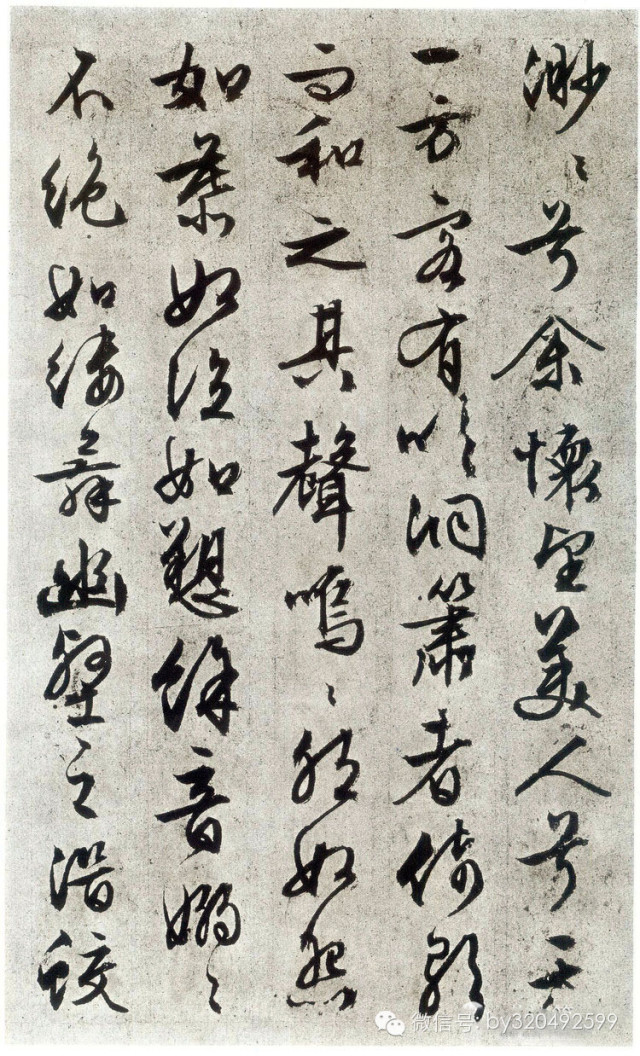 渺〻兮余懷望美人兮天
一方客有吹洞簫者倚歌
而和之其聲嗚〻然如怨
如慕如泣如愬餘音嫋〻
不絕如縷舞幽壑之潛蛟
微信号: by320492599